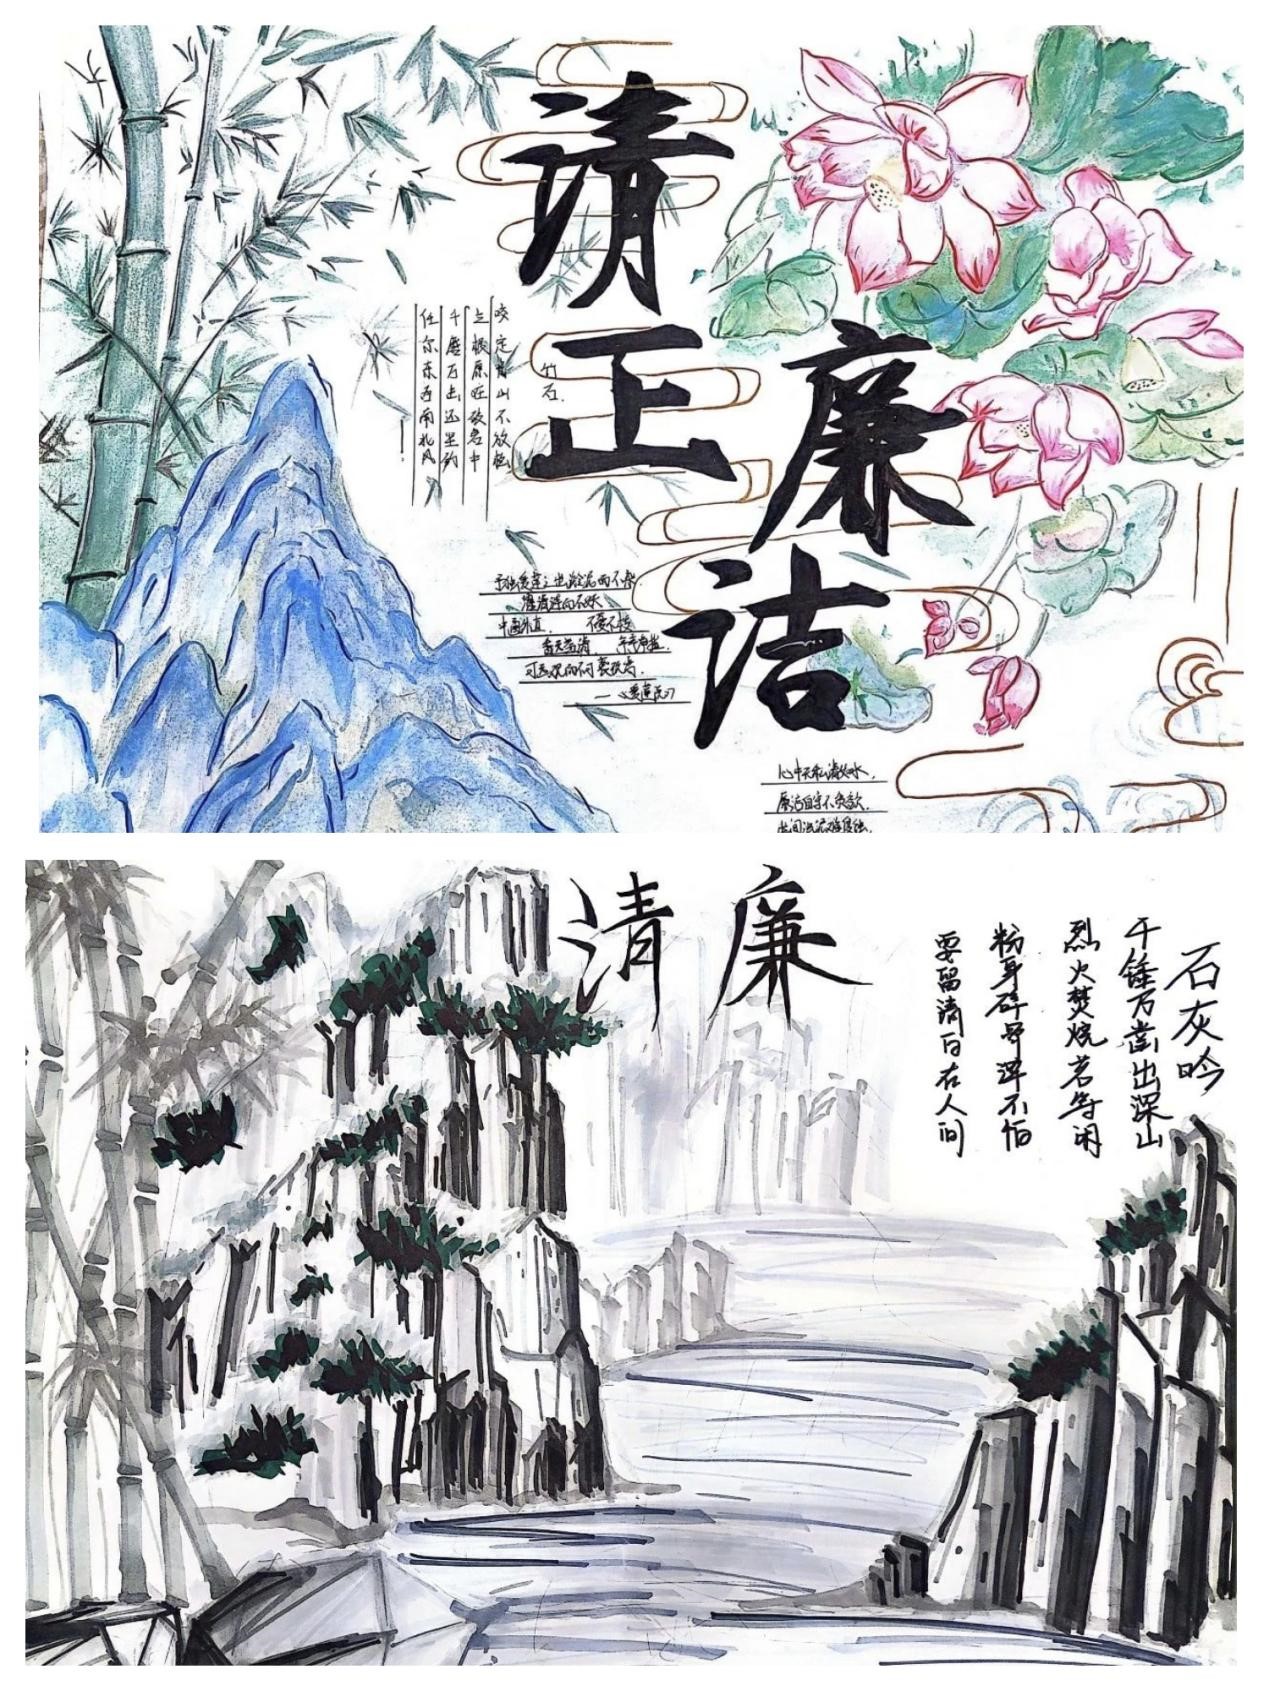 清正
廉洁
竹石.
咬定青山不放松
立根原在破岩中
千磨万击还坚劲
任尔东西南北风
予独爱莲之出淤泥而不染
濯清涟而不妖
中通外直、不蔓不枝
香远益清 亭亭净植.
可远观而不可亵玩焉.
—《爱莲说》
心中无私清如水,
廉洁自守不贪
清廉
石灰吟
千锤万凿出深山
烈火焚烧若等闲
粉身碎骨浑不怕
要留清白在人间